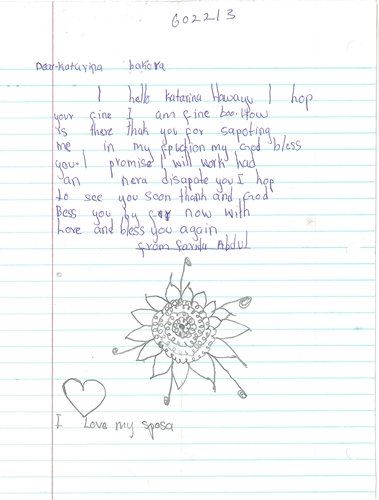 602213
Dear Katarina bakora
I hello Katarina Hawayu I hop
your fine I am fine too. How
is there thak you for sapoting
me in my my God bless
you. I promise I will work had
an nera disapate you I hop
to see you soon thank and God
Bess you by for now with
Love and bless you again
from Farida Abdul
I Love my sposa